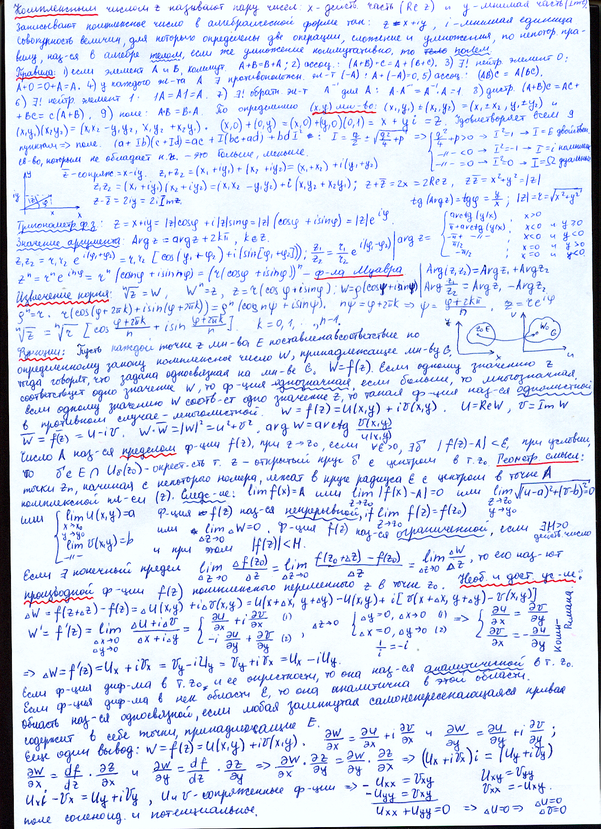 Комплексным числом z называют пару чисел: x - действ. часть (Re z) и y - мнимая часть (Im z)
Записывают комплексное число в алгебраической форме так: z = x+iy, i - мнимая единица
Совокупность величин, для которых определены две операции, сложение и умножения, по некотор. пра-
вилу, наз-ся в алгебре телом, если же умножение коммутативно, то тело полем.
Правила: 1) если элемент A и B, коммут. A+B=B+A; 2) ассоц.: (A+B)+C=A+(B+C), 3) ∃! нейтр. элемент 0:
A+0=0+A=A. 4) у каждого эл-та A ∃ противополож. эл-т (-A): A+(-A)=0, 5) ассоц.: (AB)C=A(BC),
6) ∃! нейтр. элемент 1: 1A=A1=A. 7) ∃! обратн. эл-т A⁻¹ для A: A·A⁻¹=A⁻¹A=1 8) дистр. (A+B)C=AC+
+BC=C(A+B) 9) поле: A·B=B·A. По определению (x,y) мн-во: (x₁,y₁)±(x₂,y₂)=(x₁±x₂, y₁±y₂) и
(x₁y₁)(x₂y₂)=(x₁x₂-y₁y₂, x₁y₂+x₂y₁). (x,0)+(0,y)=(x,0)+(y,0)(0,1)=x+yi=z. Удовлетворяет всем 9
пунктам => поле. (a+Ib)(c+Id)=ac+I(bc+ad)+bdI²
св-во, которым не обладает к.ч. - это больше, меньше.
z̄ - сопряж = x-iy. z₁+z₂=(x₁+iy₁)+(x₂+iy₂)=(x₁+x₂)+i(y₁+y₂)
z₁z₂=(x₁+iy₁)(x₂+iy₂)=(x₁x₂-y₁y₂)+i(x₁y₂+x₂y₁); z+z̄=2x=2Re z, zz̄=x²+y²=|z|
z-z̄=2iy=2i Im z. tg(Arg z)=tg φ=y/x; |z|=r=√x²+y²
Тригонометр. ф.: z=x+iy=|z|cosφ+i|z|sinφ=|z|(cosφ+isinφ)=|z|e^iφ
Значение аргумента: Arg z=arg z+2kπ, k∈Z.
z₁z₂=r₁r₂e^i(φ₁+φ₂)=r₁r₂[cos(φ₁+φ₂)+i(sin[φ₁+φ₂])]; z₁/z₂=r₁/r₂ e^i(φ₁-φ₂)
zⁿ=rⁿe^inφ=rⁿ(cos nφ+isin nφ)=(r(cosφ+isinφ))ⁿ - ф-ла Муавра
Arg(z₁z₂)=Arg z₁+Arg z₂
Arg z₁/z₂=Arg z₁-Arg z₂
Извлечение корня: ⁿ√z=W, Wⁿ=z, z=r(cosφ+isinφ); W=ρ(cosψ+isinψ)
ρⁿ=r. r(cos(φ+2πk)+isin(φ+2πk))=ρⁿ(cos nψ+isin nψ). nψ=φ+2πk => ψ=(φ+2kπ)/n, z=re^iφ
ⁿ√z=ⁿ√r [cos (φ+2πk)/n + isin (φ+2πk)/n], k=0,1,...,n-1.
Функции: Пусть каждой точке z мн-ва E поставлена в соответствие по
определенному закону комплексное число W, принадлежащее мн-ву G,
тогда говорят, что задана однозначная на мн-ве E, W=f(z). Если одному значению z
соответствует одно значение W, то ф-ция однозначная, если больше, то многозначная,
если одному значению W соотв-ет одно значение z, то такая ф-ция наз-ся однолистной
в противном случае - многолистной. W=f(z)=u(x,y)+iv(x,y). u=Re W, v=Im W
W̄=f̄(z)=u-iv, W·W̄=|W|²=u²+v², arg W=arctg v(x,y)/u(x,y)
Число A наз-ся пределом ф-ции f(z), при z->z₀, если ∀ε>0, ∃δ |f(z)-A|<ε, при условии,
точки zₙ, начиная с некоторого номера, лежат в круге радиуса ε с центром в точке A
комплексной пл-сти (z). Следс-ие: lim f(x)=A или lim|f(x)-A|=0 или lim√(u-a)²+(v-b)²=0
или { lim u(x,y)=a Ф-ция f(z) наз-ся непрерывной, if lim f(z)=f(z₀)
lim v(x,y)=b или lim ΔW=0. Ф-ция f(z) наз-ся ограниченной, если ∃M>0
и при этом |f(z)|<M.
Если ∃ конечный предел lim Δf(z₀)/Δz=lim (f(z₀+Δz)-f(z₀))/Δz=lim ΔW/Δz, то его наз-ют
производной ф-ции f(z) комплексного переменного z в точке z₀. Необ. и дост. ус-ие:
ΔW=f(z+Δz)-f(z)=Δu(x,y)+iΔv(x,y)=u(x+Δx, y+Δy)-u(x,y)+i[v(x+Δx, y+Δy)-v(x,y)]
W'=f'(z)=lim (Δu+iΔv)/(Δx+iΔy)={ ∂u/∂x+i∂v/∂x (1) -i∂u/∂y+∂v/∂y (2), Δz->0 { Δy=0, Δx->0 (1) Δx=0, Δy->0 (2) 1/i=-i => { ∂u/∂x=∂v/∂y ∂v/∂x=-∂u/∂y Коши-Римана
=> ΔW=f'(z)=Uₓ+iVₓ=V_y-iU_y=V_y+iVₓ=Uₓ-iU_y.
Если ф-ция диф-ма в т. z₀, и ее окрестности, то она наз-ся аналитичной в т. z₀.
Если ф-ция диф-ма в нек. области E, то она аналитична в этой области.
Область наз-ся односвязной, если любая замкнутая самонепересекающаяся кривая
содержит в себе точки, принадлежащие E.
Еще один вывод: W=f(z)=u(x,y)+iv(x,y). ∂W/∂x=∂u/∂x+i∂v/∂x и ∂W/∂y=∂u/∂y+i∂v/∂y;
∂W/∂x=df/dz·∂z/∂x и ∂W/∂y=df/dz·∂z/∂y => ∂W/∂x·∂z/∂y=∂W/∂y·∂z/∂x => (Uₓ+iVₓ)i=(U_y+iV_y)
Uₓi-Vₓ=U_y+iV_y, u и v - сопряженные ф-ции => Uₓₓ=Vₓy -U_yy=Vₓy Uₓy=V_yy Vₓₓ=-Uₓy.
поле соленоид. и потенциальное. Uₓₓ+U_yy=0 => ΔU=0 => ΔU=0 ΔV=0